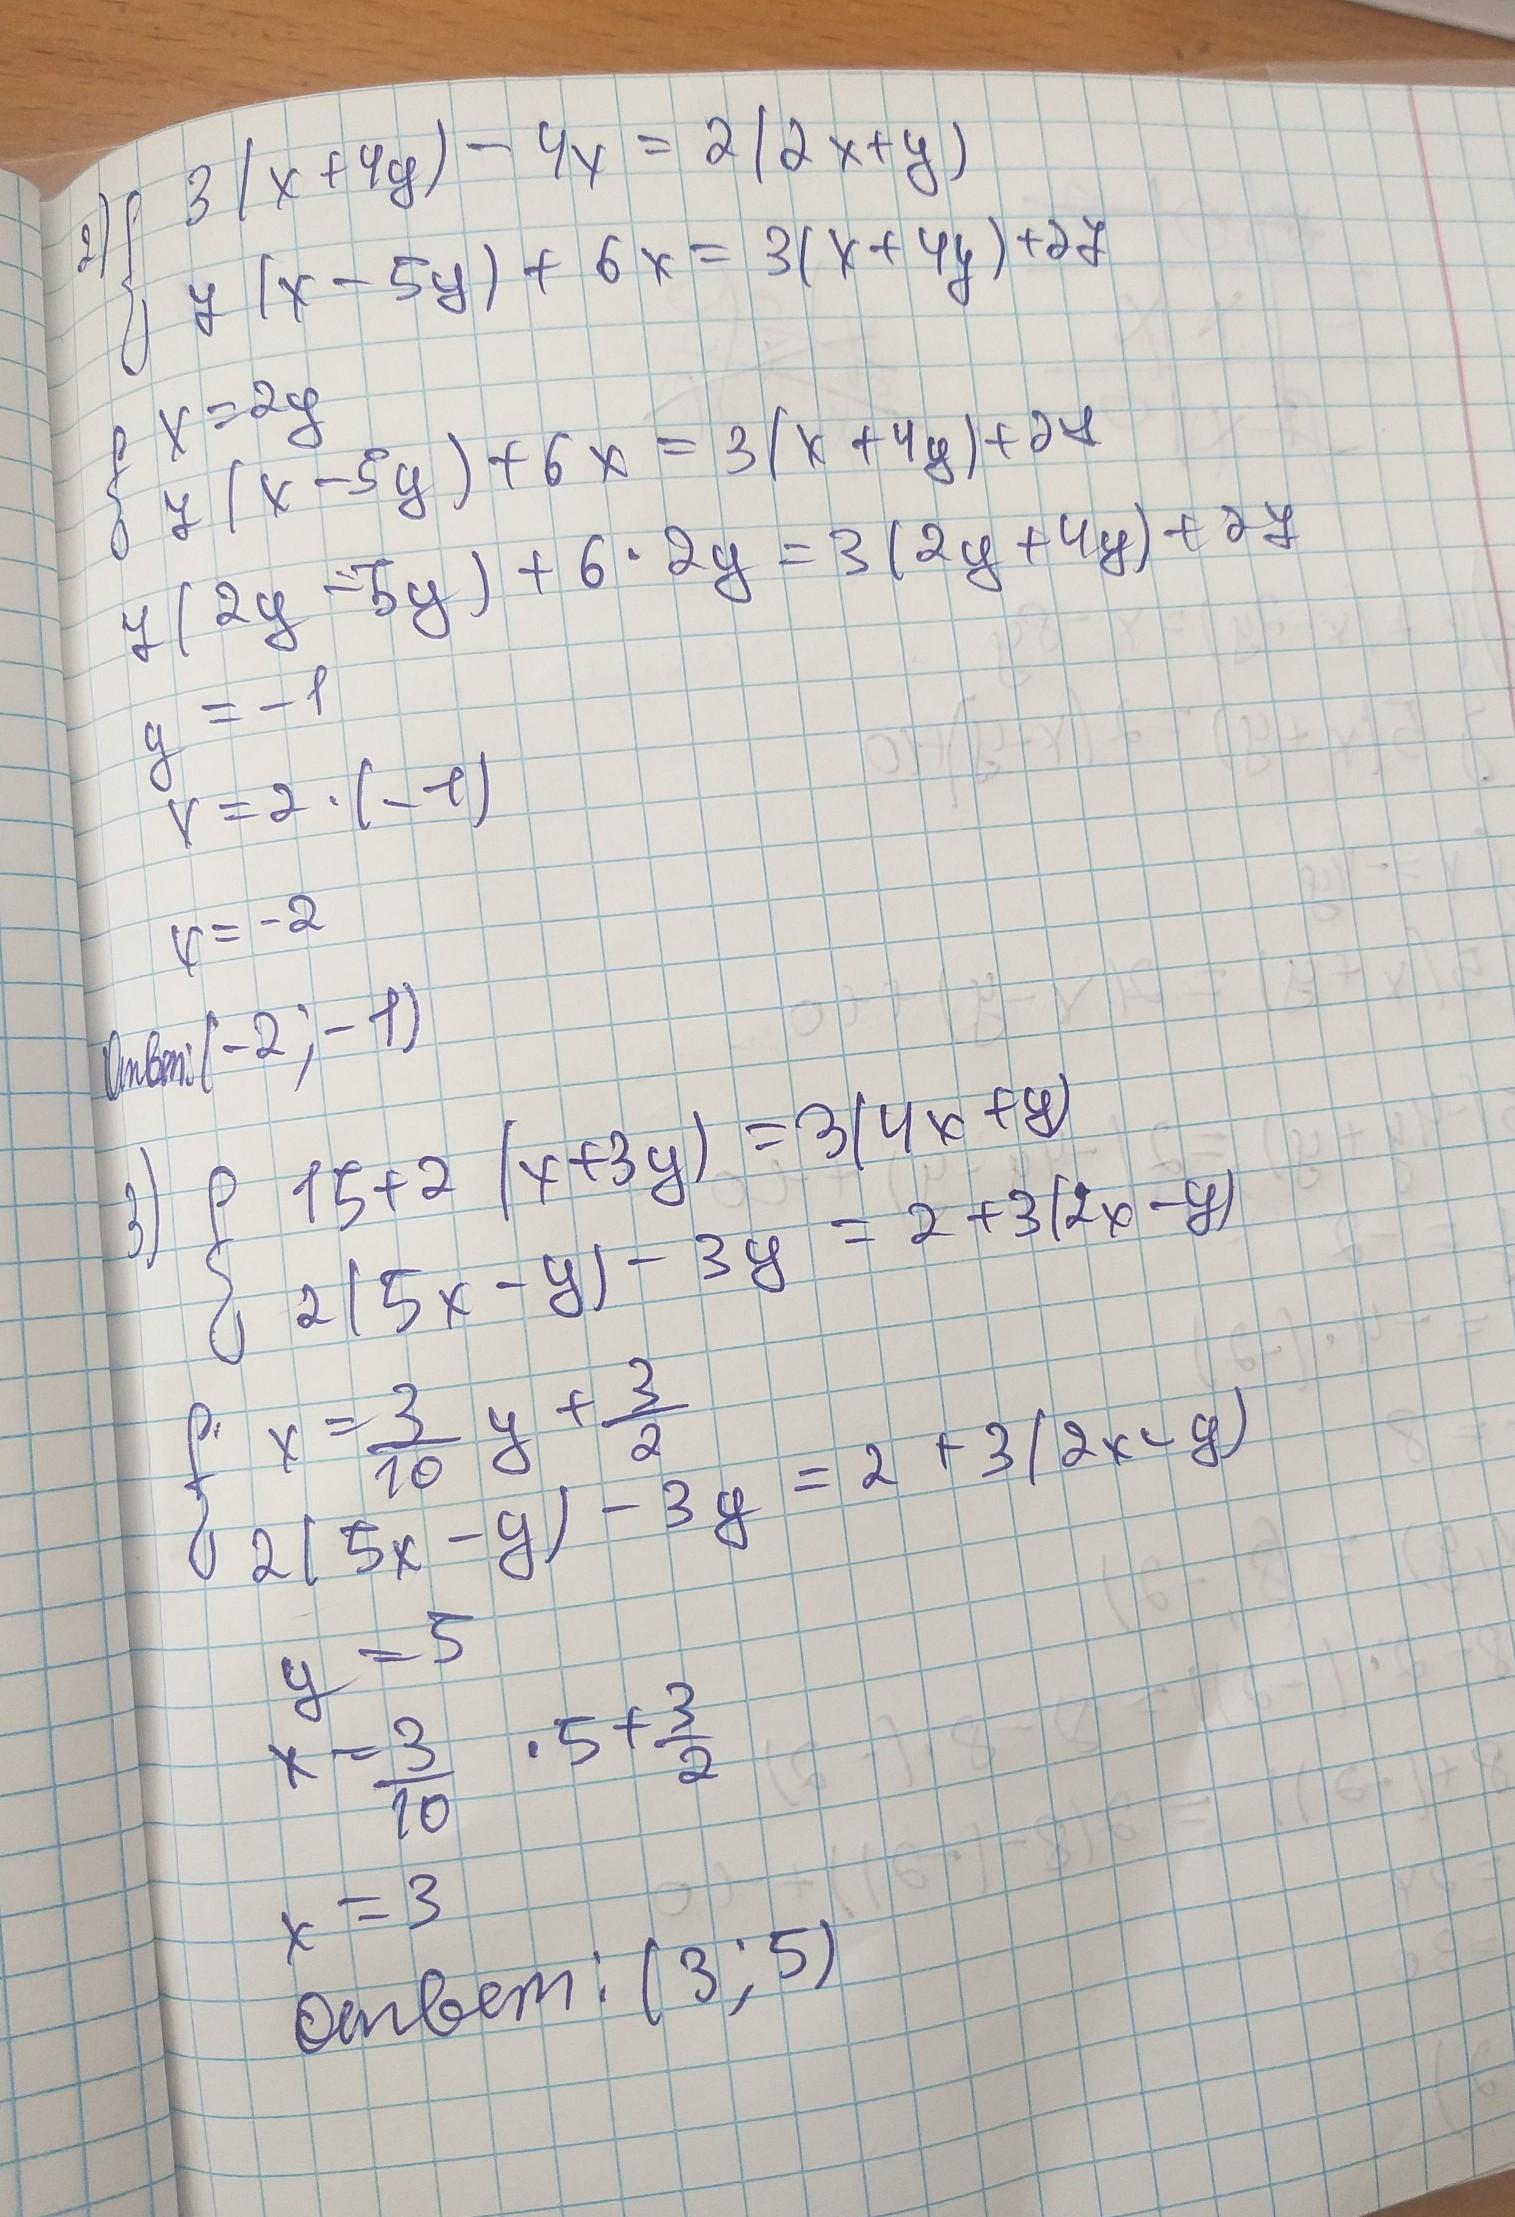 2) { 3(x+4y) - 4x = 2(2x+y)
7(x-5y) + 6x = 3(x+4y)+27
{ x=2y
7(x-5y)+6x = 3(x+4y)+27
7(2y-5y)+6·2y=3(2y+4y)+27
y = -1
x=2·(-1)
x=-2
Ответ:(-2;-1)
3) { 15+2(x+3y)=3(4x+y)
2(5x-y)-3y = 2+3(2x-y)
{ x=3/10 y+3/2
2(5x-y)-3y=2+3(2x-y)
y=5
x=3/10 ·5+3/2
x=3
Ответ:(3;5)